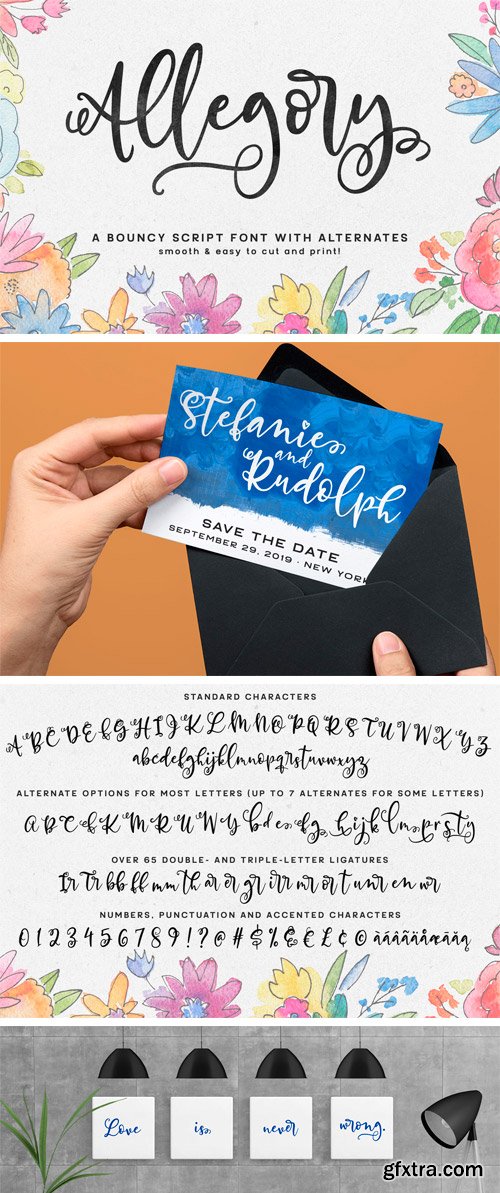 Allegory
A BOUNCY SCRIPT FONT WITH ALTERNATES
smooth & easy to cut and print!
Stefanie
and
Rudolph
SAVE THE DATE
SEPTEMBER 29, 2019 · NEW YORK
STANDARD CHARACTERS
A B C D E F G H I J K L M N O P Q R S T U V W X Y Z
abcdefghijklmnopqrstuvwxyz
ALTERNATE OPTIONS FOR MOST LETTERS (UP TO 7 ALTERNATES FOR SOME LETTERS)
A B C E K M R U W Y b d e f g h i j k l m p r s t y
OVER 65 DOUBLE- AND TRIPLE-LETTER LIGATURES
Ir Tr bb ff mm th ar er gr irr mr or t unr en wr
NUMBERS, PUNCTUATION AND ACCENTED CHARACTERS
0 1 2 3 4 5 6 7 8 9 ! ? @ # $ % & € £ ¢ © àáâãäåæāăą
Love is never wrong.
gfxtra.com